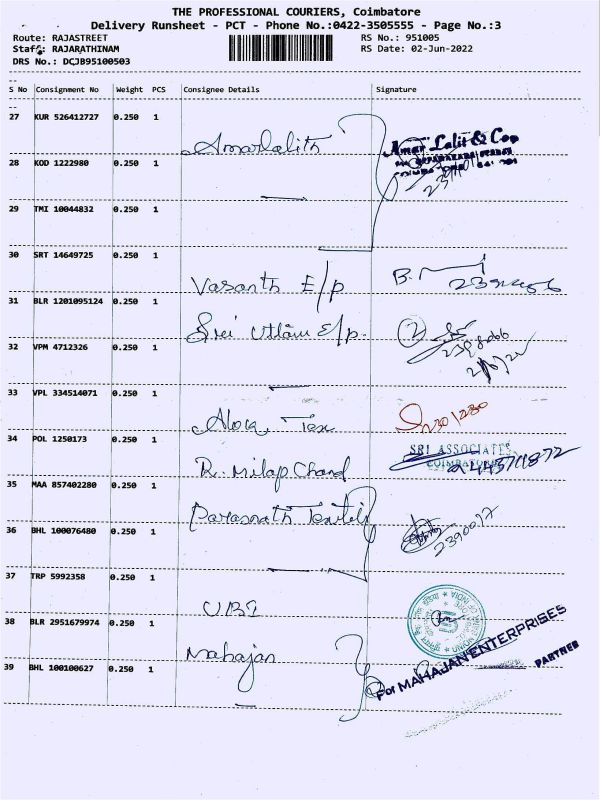 THE PROFESSIONAL COURIERS, Coimbatore
Delivery Runsheet - PCT - Phone No.:0422-3505555 - Page No.:3
Route: RAJASTREET RS No.: 951005
Staff: RAJARATHINAM RS Date: 02-Jun-2022
DRS No.: DCJB95100503
S No Consignment No Weight PCS Consignee Details Signature
27 KUR 526412727 0.250 1 Amarlalith Amar Lalit & Coo
28 KOD 1222980 0.250 1
29 TMI 10044832 0.250 1
30 SRT 14649725 0.250 1 Vasanth E/p B.
31 BLR 1201095124 0.250 1 Sri Uttam E/p. 2
32 VPM 4712326 0.250 1
33 VPL 334514071 0.250 1 Tex
34 POL 1250173 0.250 1 R. Milap Chand SRI ASSOCIATES
COIMBATORE
35 MAA 857402280 0.250 1 Parasnath
36 BHL 100076480 0.250 1 2390017
37 TRP 5992358 0.250 1 UBI
38 BLR 2951679974 0.250 1 Mahajan For MAHAJAN ENTERPRISES
PARTNER
39 BHL 100100627 0.250 1